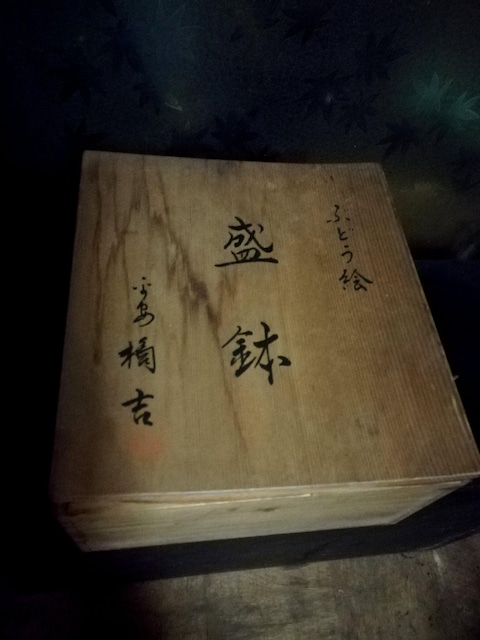 ぶどう絵
盛鉢
平安橘吉